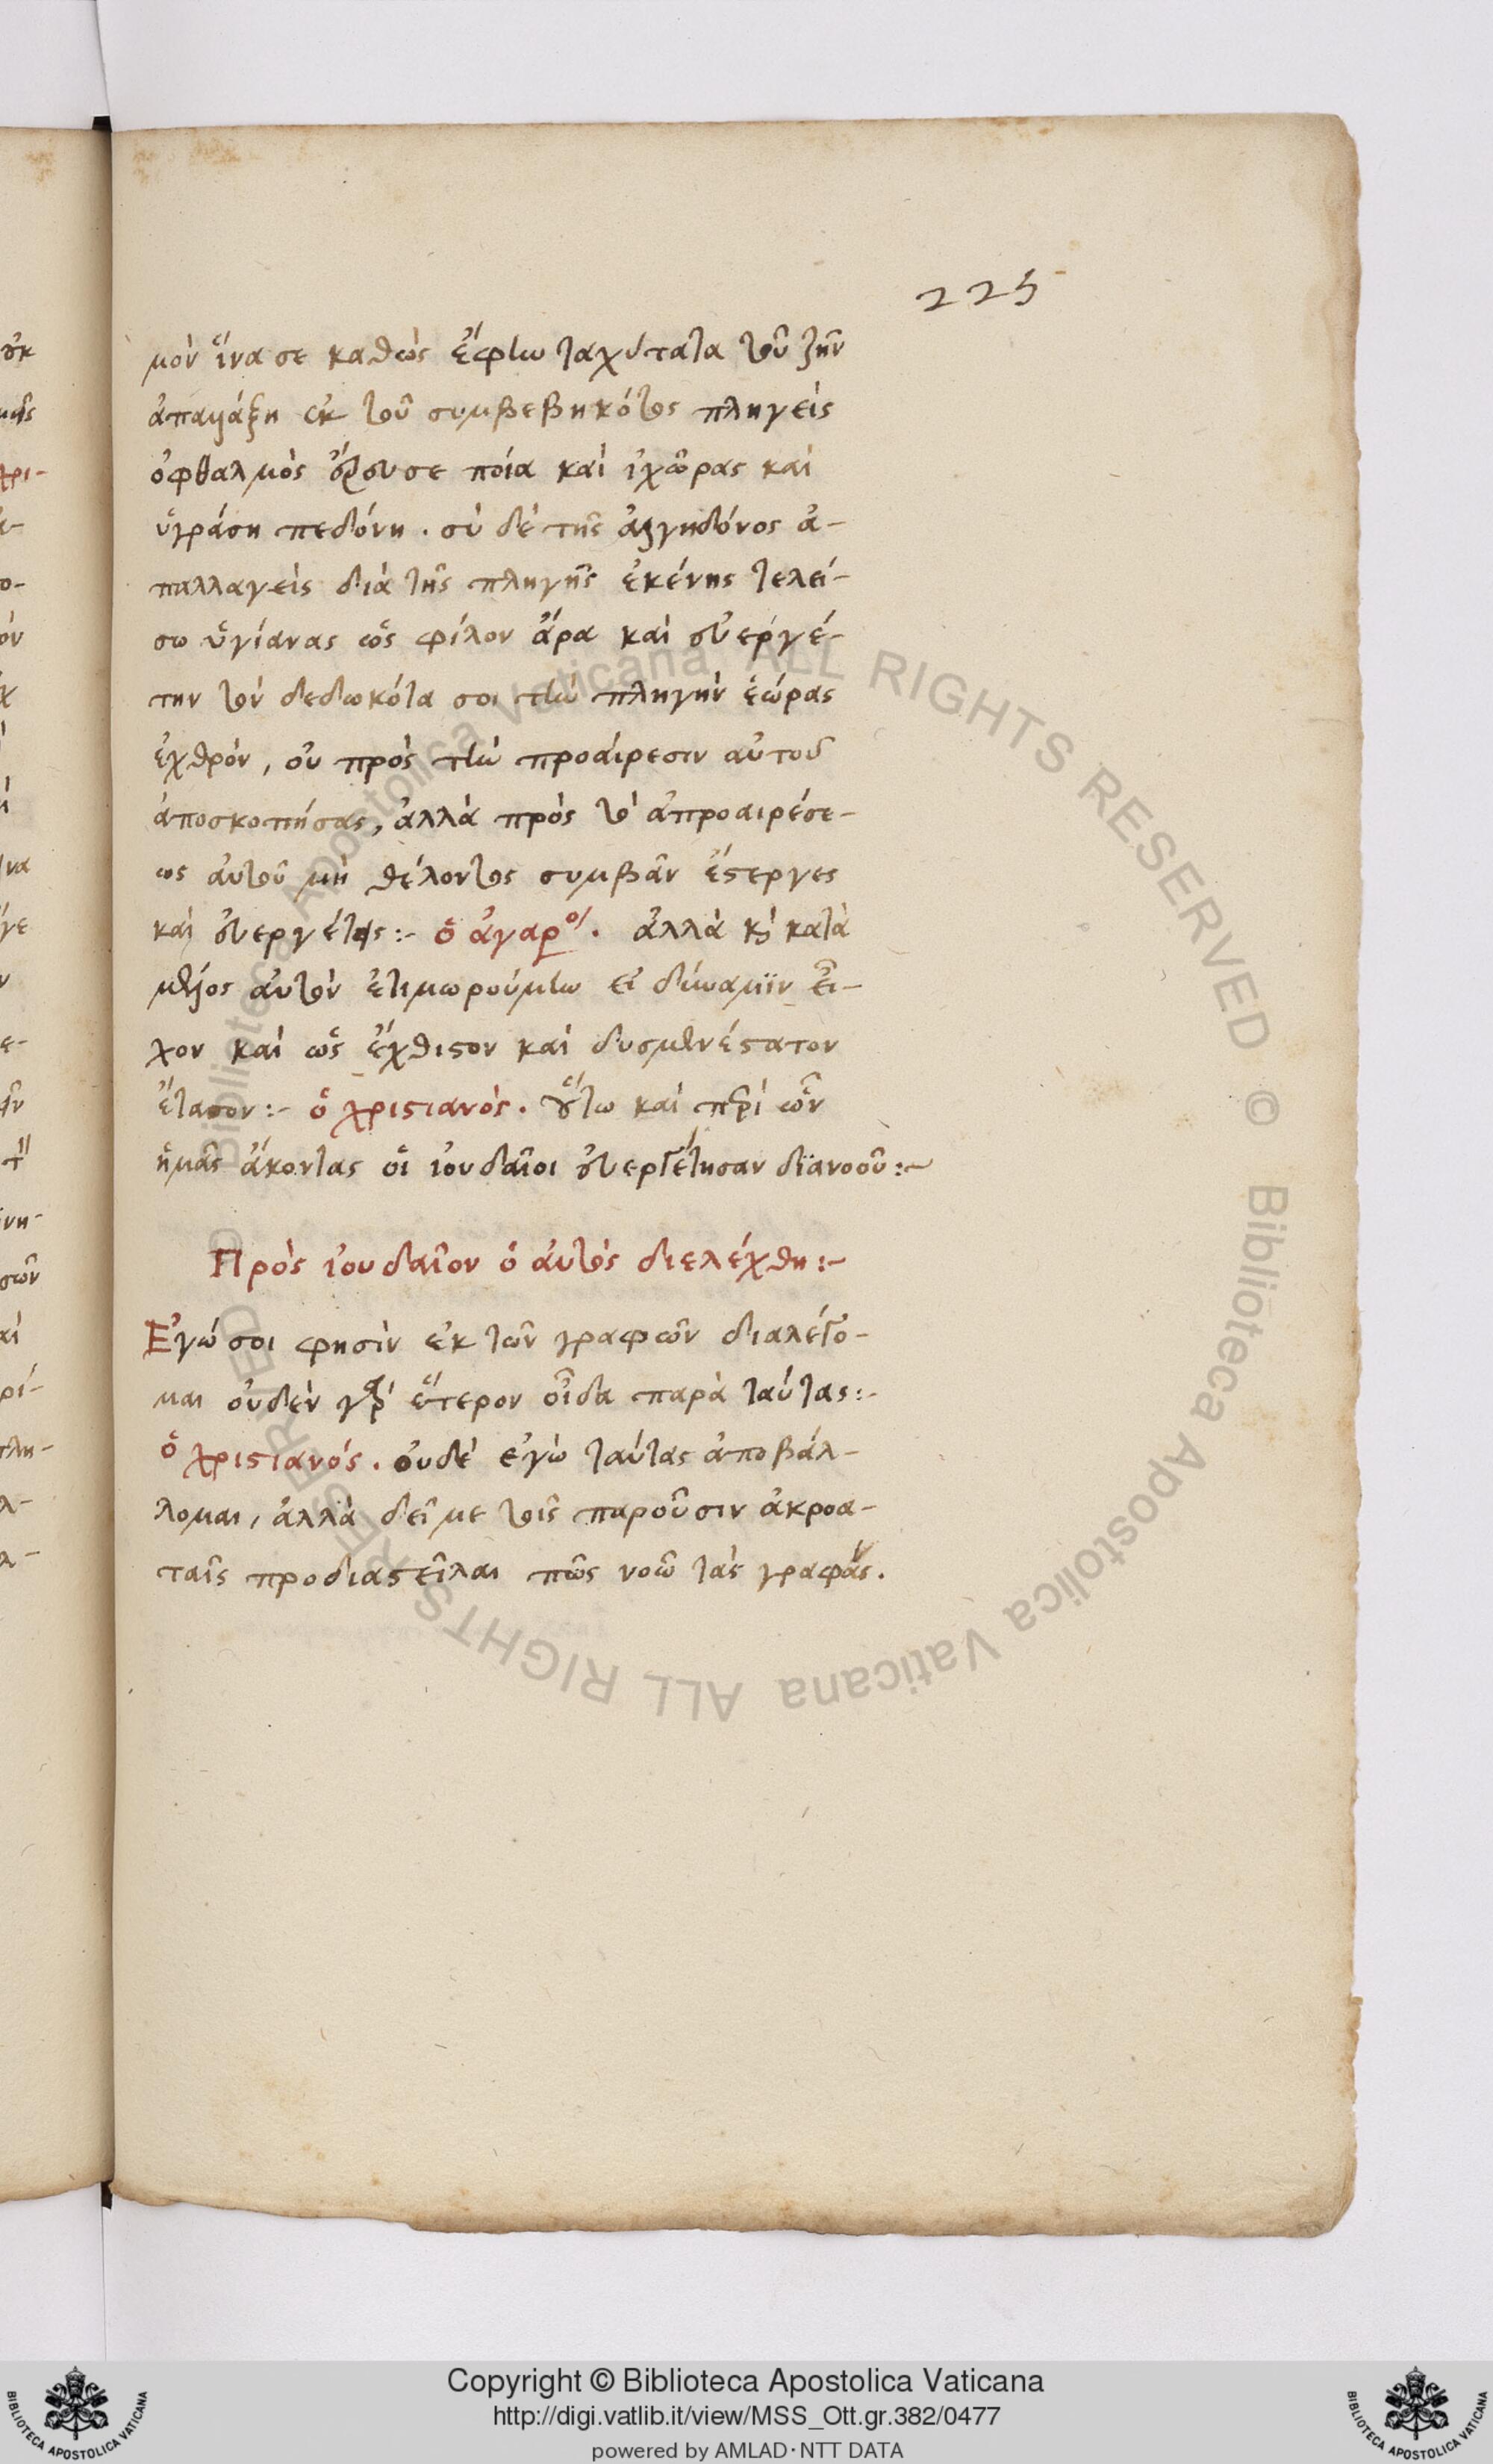 225
μὸν ἵνα σε καθὼς ἔφην ταχύτατα τοῦ ζῆν
ἀπαλλάξη ἐκ τοῦ συμβεβηκότος πληγεὶς
ὀφθαλμὸς ποία καὶ ἰχῶρας καὶ
ὑγράση πεδόνη. σὺ δὲ τῆς ἀλγηδόνος ἀ-
παλλαγεὶς διὰ τῆς πληγῆς ἐκένης τελεί-
σω ὑγίανας ὡς φίλον ἄρα καὶ εὐεργέ-
την τὸν δεδωκότα σοι τὴν πληγὴν ἑώρας
ἐχθρόν, οὐ πρὸς τὴν προαίρεσιν αὐτοῦ
ἀποσκοπήσας, ἀλλὰ πρὸς τὸ ἀπροαιρέσε-
ως αὐτοῦ μὴ θέλοντος συμβὰν ἔστεργες
καὶ εὐεργέτης :- ὁ ἀγαρ. ἀλλὰ κὲ κατὰ
μένος αὐτὸν ἐτιμωρούμην εἰ δύναμϊν εἶ-
χον καὶ ὡς ἔχθιστον καὶ δυσμενέστατον
ἔτασον :- ὁ χριστιανός. οὕτω καὶ περὶ ὧν
ἡμᾶς ἄκοντας οἱ ἰουδαῖοι εὐεργέτησαν δϊανοοῦ :-
Πρὸς ἰουδαῖον ὁ αὐτὸς διελέχθη :-
Ἐγώ σοι φησὶν ἐκ τῶν γραφῶν διαλέγο-
μαι οὐδὲν γὰρ ἕτερον οἶδα παρὰ ταύτας :-
ὁ χριστιανός. οὐδὲ ἐγὼ ταύτας ἀποβάλ-
λομαι, ἀλλὰ δεῖ με τοῖς παροῦσιν ἀκροα-
ταῖς προδιαστεῖλαι πῶς νοῶ τὰς γραφάς.
© Biblioteca Apostolica Vaticana ALL RIGHTS RESERVED © Biblioteca Apostolica Vaticana ALL RIGHTS RESERVED
BIBLIOTECA APOSTOLICA VATICANA
Copyright © Biblioteca Apostolica Vaticana
http://digi.vatlib.it/view/MSS_Ott.gr.382/0477
powered by AMLAD·NTT DATA
BIBLIOTECA APOSTOLICA VATICANA